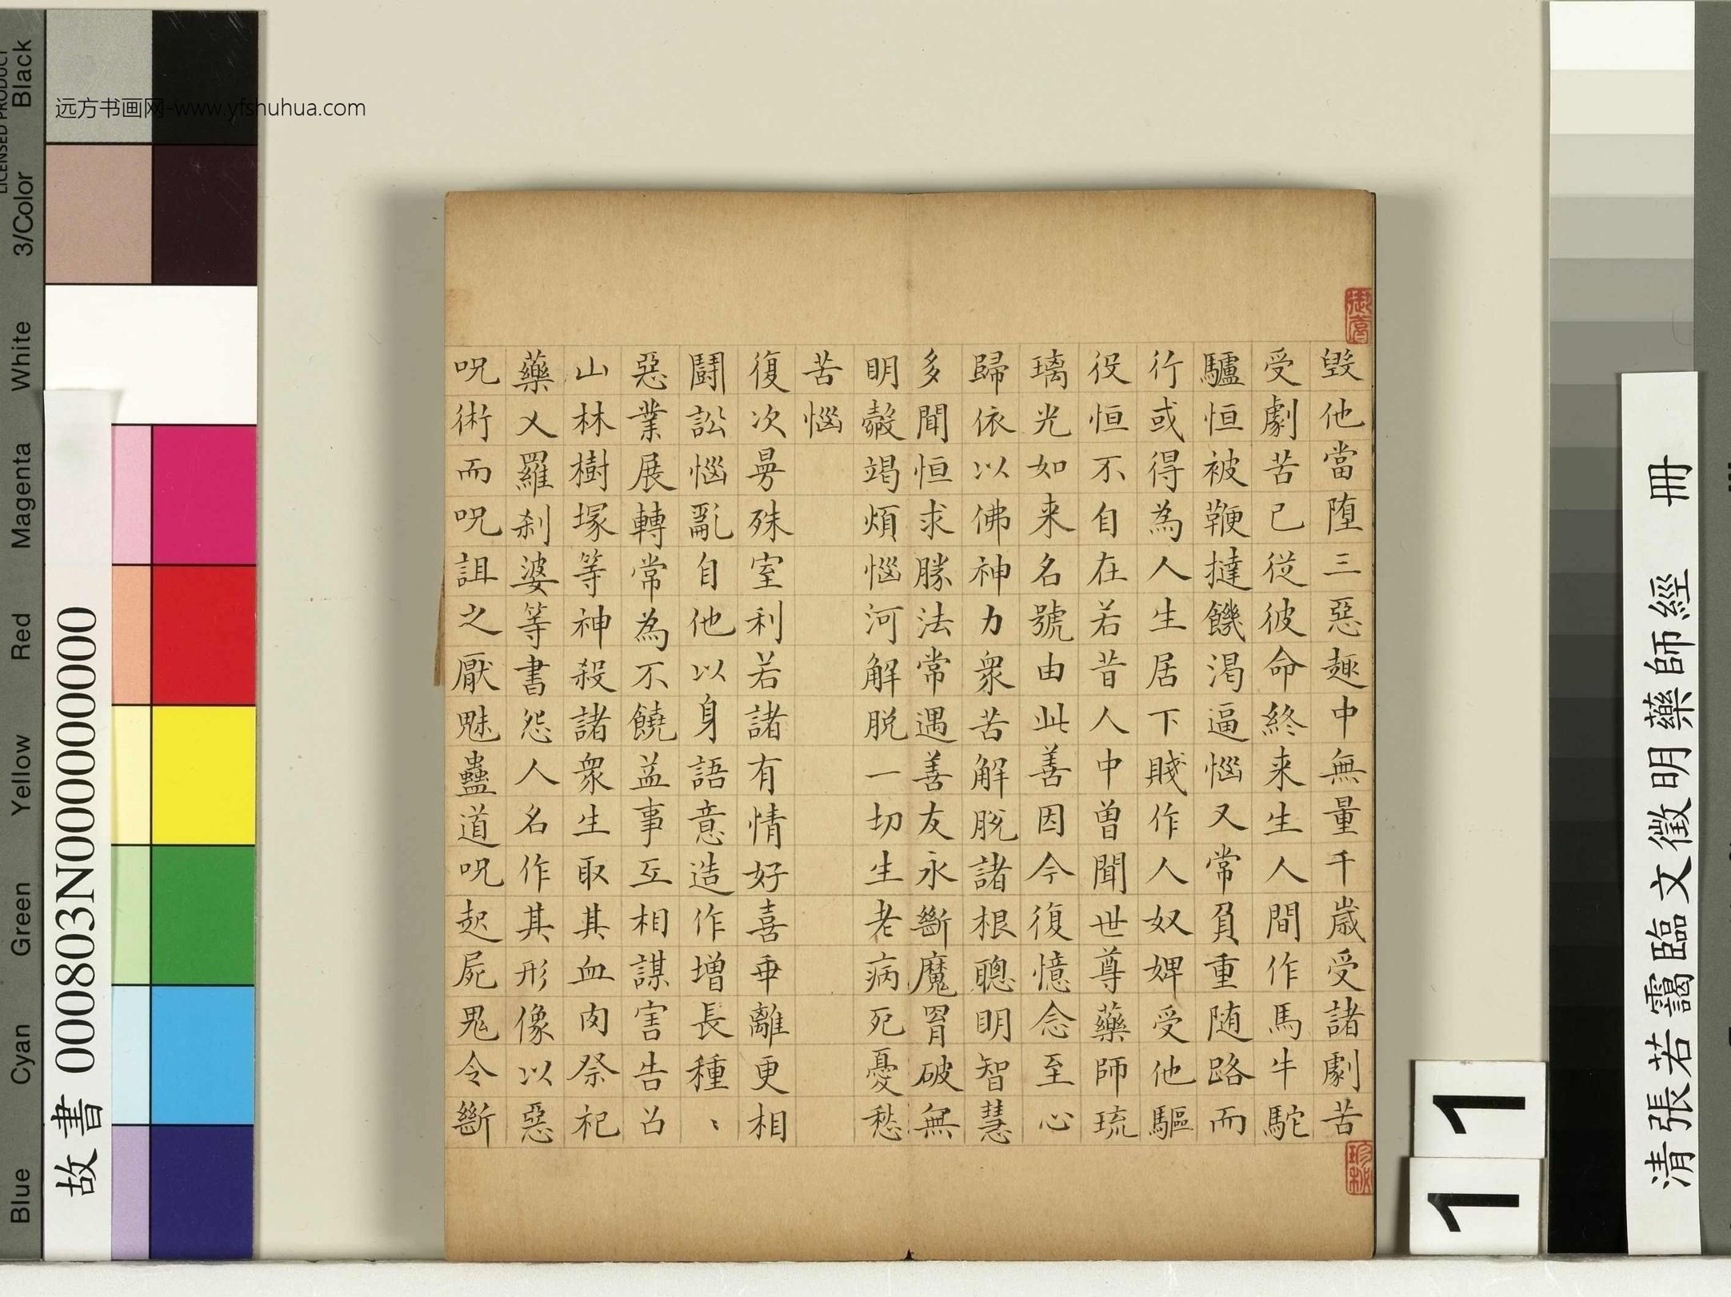 远方书画网-www.yfshuhua.com
LICENSED PRODUCT
Black
3/Color
White
Magenta
Red
Yellow
Green
Cyan
Blue
清張若靄臨文徵明藥師經 冊
11
毀他當堕三惡趣中無量千歲受諸劇苦
受劇苦已從彼命終来生人間作馬牛駝
驢恒被鞭撻饑渴逼惱又常負重随路而
行或得為人生居下賤作人奴婢受他驅
役恒不自在若昔人中曾聞世尊藥師琉
璃光如来名號由此善因今復憶念至心
歸依以佛神力衆苦解脱諸根聰明智慧
多聞恒求勝法常遇善友永斷魔罥破無
明㲉竭煩惱河解脱一切生老病死憂愁
苦惱
復次曼殊室利若諸有情好喜乖離更相
鬪訟惱亂自他以身語意造作增長種、
惡業展轉常為不饒益事互相謀害告召
山林樹塚等神殺諸衆生取其血肉祭祀
藥乂羅刹婆等書怨人名作其形像以惡
呪術而呪詛之厭魅蠱道呪起屍鬼令斷
故書 000803N000000000